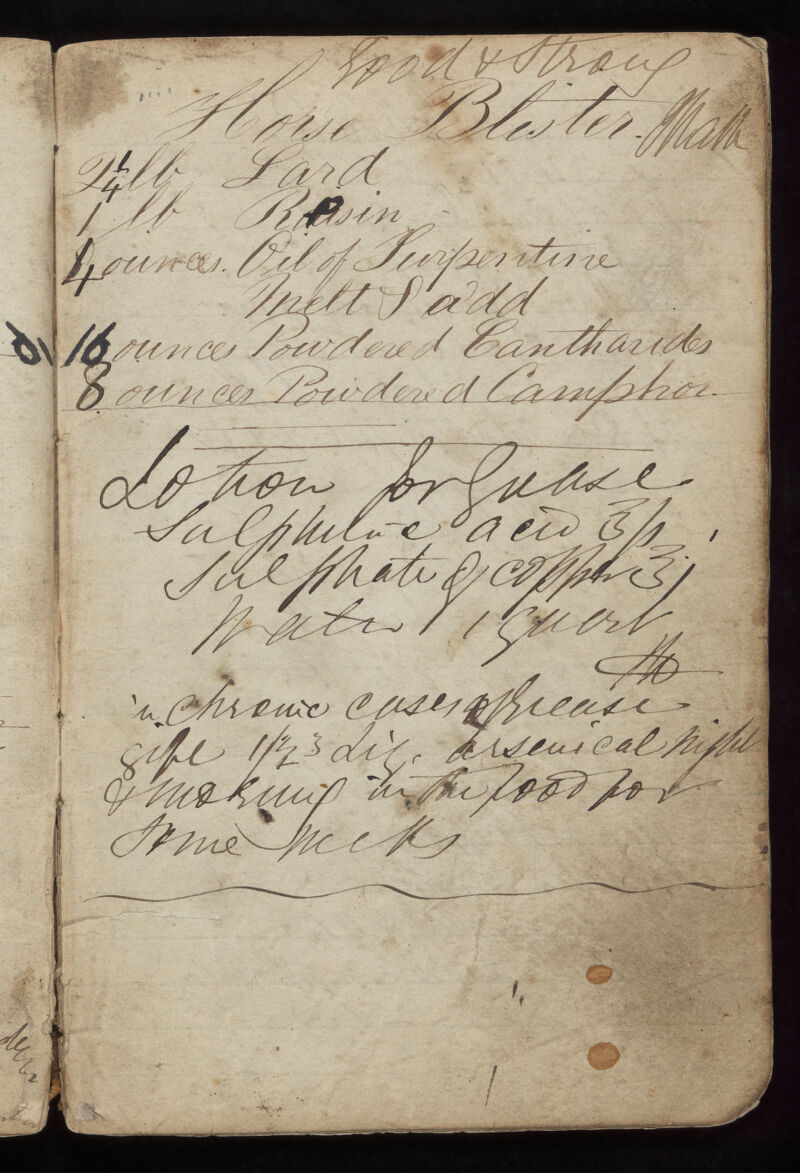 Good & Strong
Horse Blister.
2 1/4 lb Lard
1 lb Rosin
4 ounces. Oil of Turpentine
Melt & add
16 ounces Powdered Cantharides
8 ounces Powdered Camphor
Lotion for Grease
Sulphuric acid ʒp
Sulphate of copper ʒj
Water 1 quart
in chronic cases of Grease
give 1/2 ʒ Liq. arsenical night
& morning in the food for
some weeks